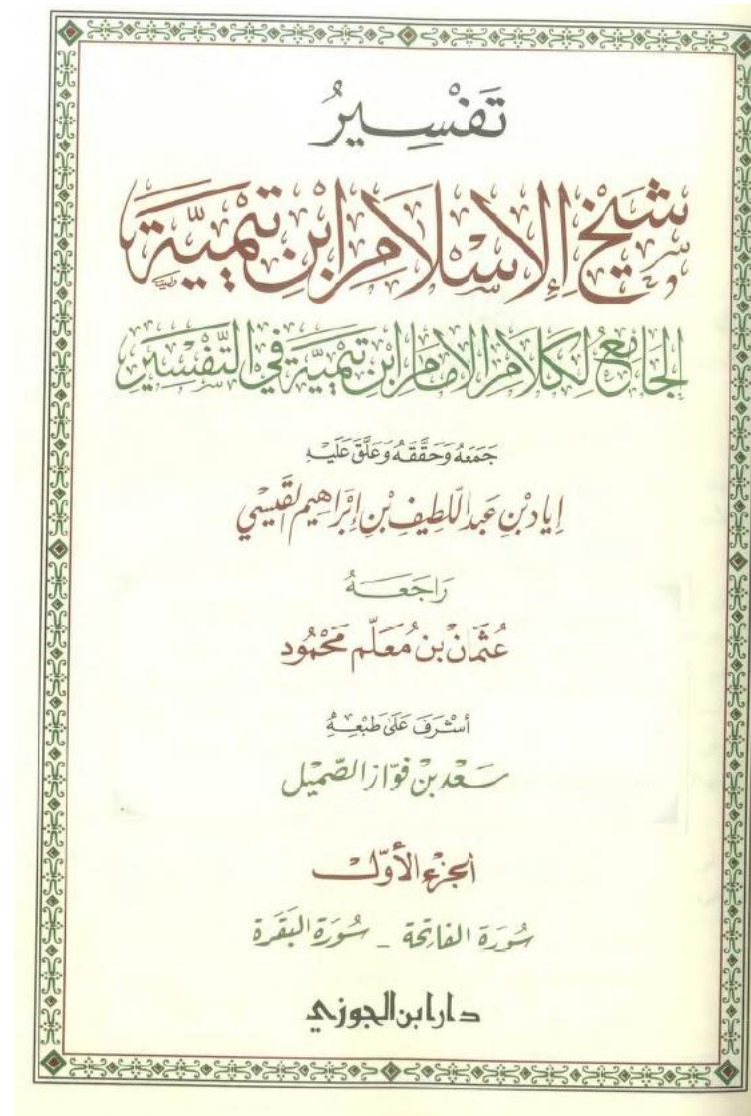 تَفْسِيرُ
شَيْخِ الإِسْلَامِ ابْنِ تَيْمِيَّةَ
الجَامِعُ لِكَلَامِ الإِمَامِ ابْنِ تَيْمِيَّةَ فِي التَّفْسِيرِ
جَمَعَهُ وَحَقَّقَهُ وَعَلَّقَ عَلَيْهِ
إِيَاد بْنِ عَبْدِ اللَّطِيفِ بْنِ إِبْرَاهِيم القَيْسِي
رَاجَعَهُ
عُثْمَان بْن مُعَلِّم مَحْمُود
أَشْرَفَ عَلَى طَبْعِهِ
سَعْد بْنُ فَوَّاز الصّمَيْل
الجزء الأوّل
سُورَة الفَاتِحَة - سُورَة البَقَرَة
دار ابن الجوزي